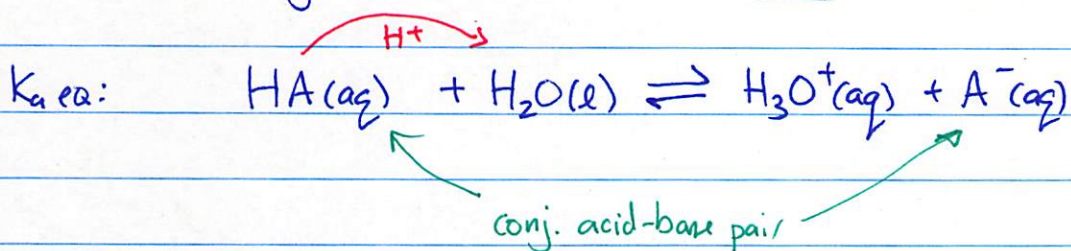 H+
Ka eq: HA(aq) + H₂O(l) ⇌ H₃O⁺(aq) + A⁻(aq)
conj. acid-base pair